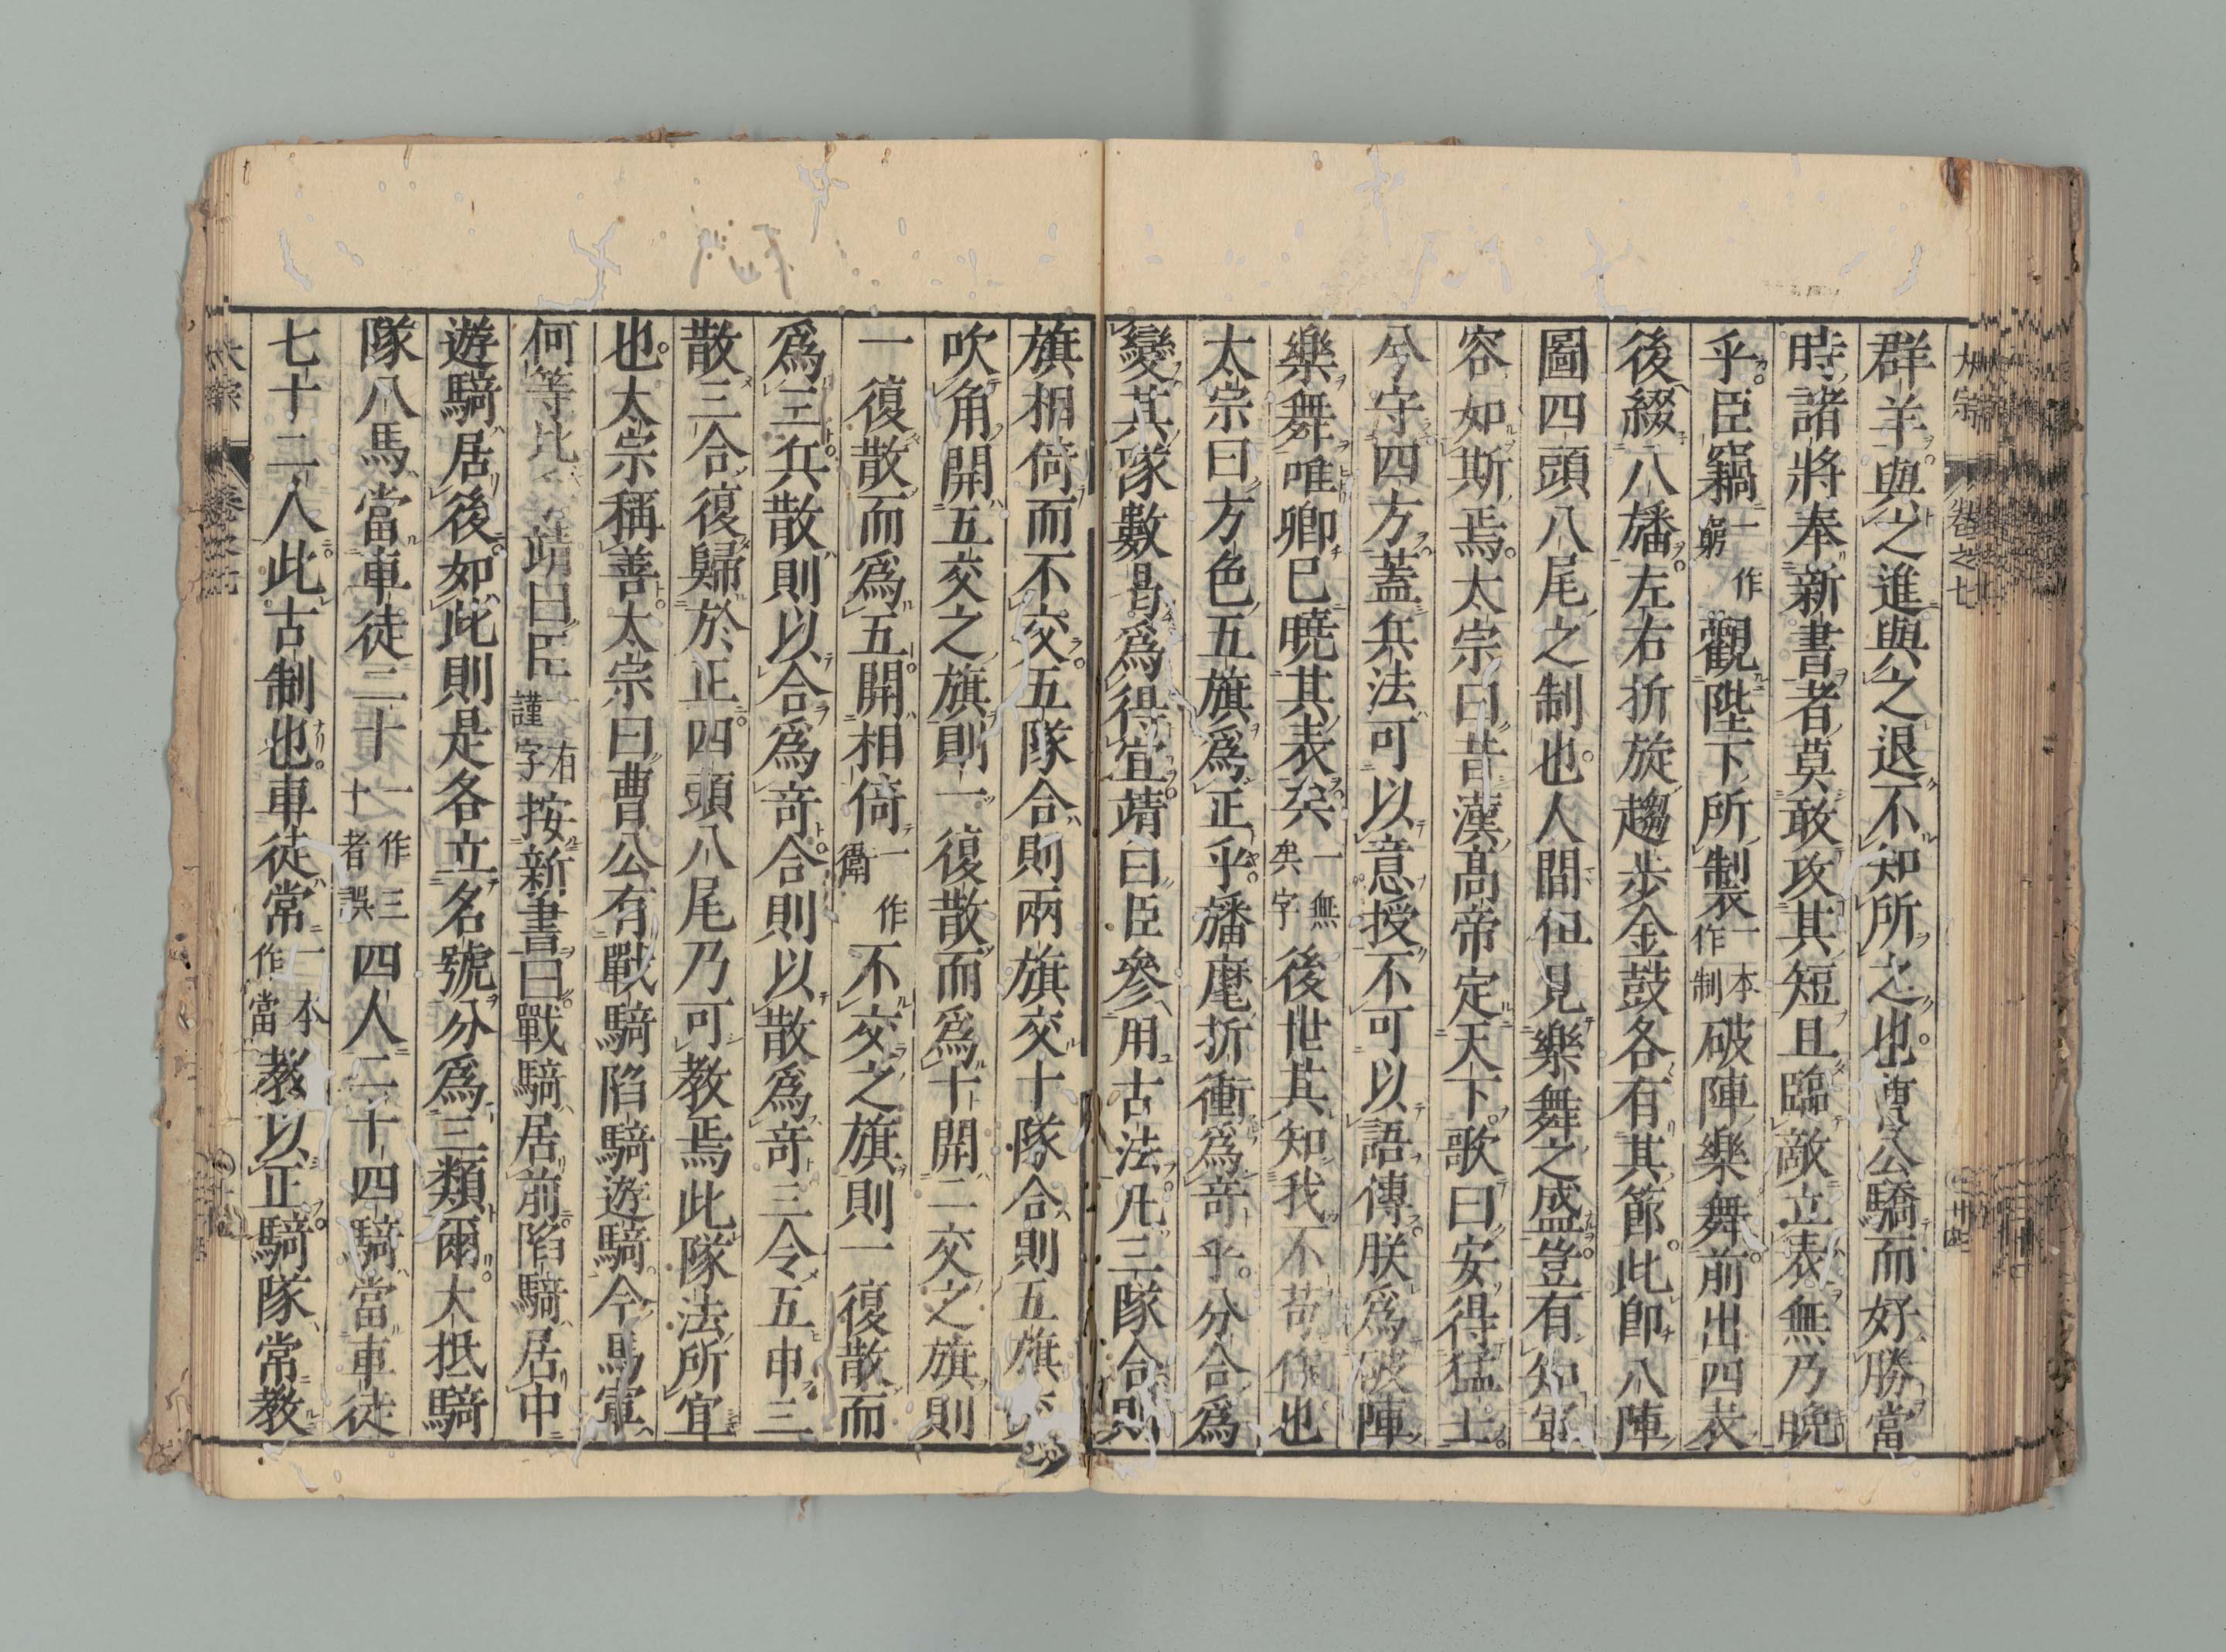 群羊與之進與之退不知所之也曹公驕而好勝當
時諸將奉新書者莫敢攻其短且臨敵立表無乃晚
乎臣竊一作窮觀陛下所製一本作制破陣樂舞前出四表
後綴八旛左右折旋趨步金鼓各有其節此卽八陣
圖四頭八尾之制也人間但見樂舞之盛豈有知軍
容如斯焉太宗曰昔漢高帝定天下歌曰安得猛士
兮守四方蓋兵法可以意授不可以語傳朕爲破陣
樂舞唯卿已曉其表矣一無矣字後世其知我不苟作也
太宗曰方色五旗爲正乎旛麾折衝爲奇乎分合爲
變其隊數曷爲得宜靖曰臣參用古法凡三隊合則
旗相倚而不交五隊合則兩旗交十隊合則五旗交
吹角開五交之旗則一復散而爲十開二交之旗則
一復散而爲五開相倚一作衞不交之旗則一復散而
爲三兵散則以合爲奇合則以散爲奇三令五申三
散三合復歸於正四頭八尾乃可教焉此隊法所宜
也太宗稱善太宗曰曹公有戰騎陷騎遊騎今馬軍
何等比靖曰臣有謹字按新書曰戰騎居前陷騎居中
遊騎居後如此則是各立名號分爲三類爾大抵騎
隊八馬當車徒二十一作三十者誤四人二十四騎當車徒
七十二人此古制也車徒常一本作當教以正騎隊常教
太宗 卷之七 卅四